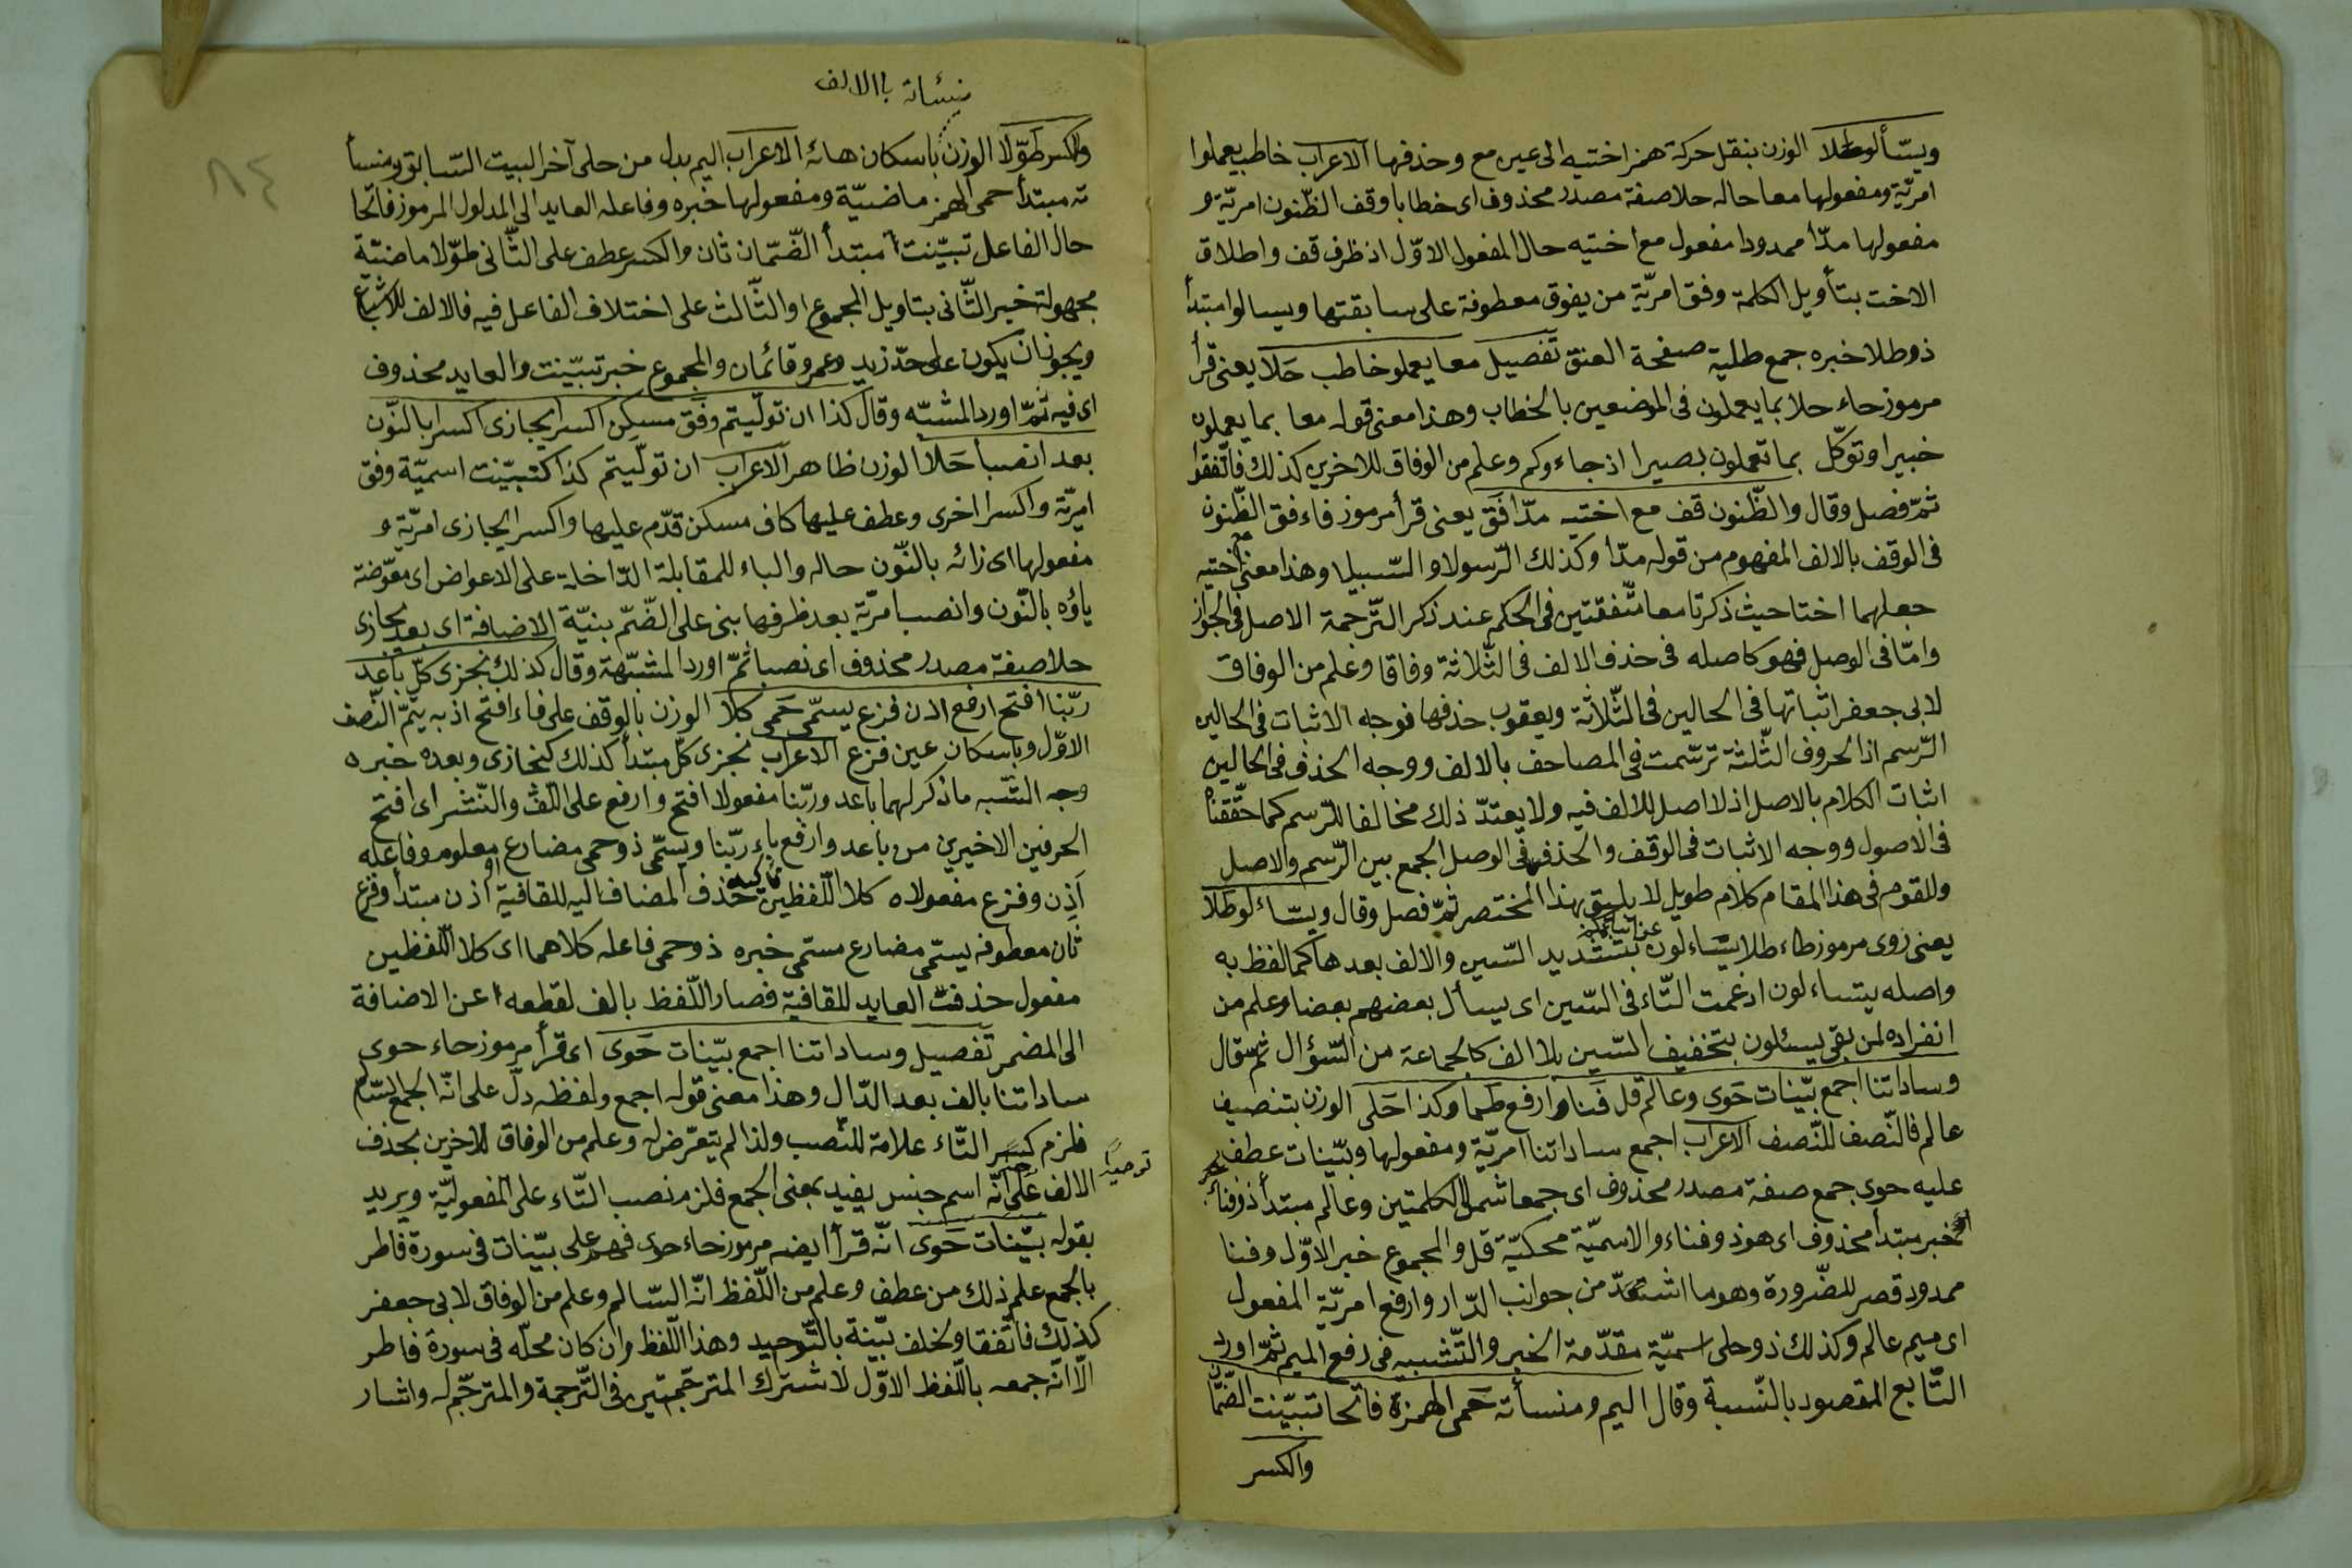 ويسّألوطلا الوزن بنقل حركة همز اختيه الى عين مع وحذفها الاعراب خاطب يعملوا
امريّة ومفعولها معا حاله حلا صفة مصدر محذوف اى خطابا وقف الظّنون امريّة و
مفعولها مدّا ممدودا مفعول مع اختيه حال المفعول الاوّل اذ ظرف قف واطلاق
الاخت بتأويل الكلمة وفق امريّة من يفوق معطوفة على سابقتها ويسالوا مبتدأ
ذو طلا خبره جمع طلية صفحة العنق تفصيل معا يعملو خاطب حَلا يعنى قرأ
مرموز حاء حلا بما يعملون فى الموضعين بالخطاب وهذا معنى قوله معا بما يعملون
خبيرا وتوكّل بما تعملون بصيرا اذ جاءوكم وعلم من الوفاق للاخرين كذلك فاتّفقوا
ثمّ فصل وقال والظّنون قف مع اختيه مدّا فَق يعنى قرأ مرموز فاء فق الظّنون
فى الوقف بالالف المفهوم من قوله مدّا وكذلك الرّسولا والسّبيلا وهذا معنى مع اختيه
جعلهما اختا حيث ذكرتا معا متّفقتين فى الحكم عند ذكر التّرجمة الاصل فى الجواز
وامّا فى الوصل فهو كاصله فى حذف الالف فى الثّلاثة وفاقا وعلم من الوفاق
لابى جعفر اثباتها فى الحالين فى الثّلاثة ويعقوب حذفها فوجه الاثبات فى الحالين
الرّسم اذ الحروف الثّلثة ترسّمت فى المصاحف بالالف ووجه الحذف فى الحالين
اثبات الكلام بالاصل اذ لا اصل للالف فيه ولا يعتدّ ذلك مخالفا للرّسم كما حقّقناه
فى الاصول ووجه الاثبات فى الوقف والحذف فى الوصل الجمع بين الرّسم والاصل
وللقوم فى هذا المقام كلام طويل لا يليق بهذا المختصر ثمّ فصل وقال ويسّاءلوطلا
يعنى روى مرموز طاء طلا يسّاءلون بتشديد السّين والالف بعدها كما لفظ به
واصله يتساءلون ادغمت التّاء فى السّين اى يسأل بعضهم بعضا وعلم من
انفراده لمن بقى يسئلون بتخفيف السّين بلا الف كالجماعة من السّؤال ثم قال
وساداتنا اجمع بيّنات حَوى وعالم قل فنا وارفع طما وكذا حَلى الوزن بتنصيف
عالم فالنّصف للنّصف الاعراب اجمع ساداتنا امريّة ومفعولها وبيّنات عطف
عليه حوى جمع صفة مصدر محذوف اى جمعا شمل الكلمتين وعالم مبتدأ ذو فناء
خبر مبتدأ محذوف اى هو ذو فناء والاسميّة محكيّة قل والمجموع خبر الاوّل وفنا
ممدود قصر للضّرورة وهو ما اشتدّ من جوانب الدّار وارفع امريّة المفعول
اى ميم عالم وكذلك ذو حلى اسميّة مقدّمة الخبر والتّشبيه فى رفع الميم ثمّ اورد
التّابع المقصود بالنّسبة وقال اليم ومنسأته حَمى الهمزة فاتحا تبيّنت الضّمّان
والكسر
منسّاته باالالف
والكسر طوّلا الوزن باسكان هائه الاعراب اليم بدل من حلى آخر البيت السّابق ومنسأ
ته مبتدأ حمى الهمز ماضيّة ومفعولها خبره وفاعله العايد الى المدلول المرموز فاتحا
حال الفاعل تبيّنت مبتدأ الضّمّان ثان والكسر عطف على الثّانى طوّلا ماضيّة
مجهولة خبر الثّانى بتاويل المجموع او الثّالث على اختلاف الفاعل فيه فالالف للاشباع
ويجوز ان يكون على حدّ زيد وعمرو قائمان والمجموع خبر تبيّنت والعايد محذوف
اى فيه ثمّ اورد المشبّه وقال كذا ان تولّيتم وفَق مسكن اكسر يجازى اكسر بالنّون
بعد انصبا حَلا الوزن ظاهر الاعراب ان تولّيتم كذا كتبيّنت اسميّة وفق
امريّة واكسر اخرى وعطف عليها كاف مسكن قدّم عليها واكسر يجازى امريّة و
مفعولها اى زائه بالنّون حاله والباء للمقابلة الدّاخلة على الاعواض اى معوّضة
ياؤه بالنّون وانصب امريّة بعد ظرفها بنى على الضّمّ بنيّة الاضافة اى بعد يجازى
حلا صفة مصدر محذوف اى نصبا ثمّ اورد المشبّهة وقال كذلك نجزى كلّ باعد
ربّنا افتح ارفع اذن فزع يسمّى حَمى كلا الوزن بالوقف على فاء افتح اذ به يتمّ النّصف
الاوّل وباسكان عين فزع الاعراب نجزى كلّ مبتدأ كذلك كنجازى وبعده خبره
وجه الشّبه ما ذكر لهما باعد وربّنا مفعولا افتح وارفع على اللّفّ والنّشر اى افتح
الحرفين الاخيرين من باعد وارفع باء ربّنا ويسمّى ذو حمى مضارع معلوم وفاعله
اَذِن وفزع مفعولاه كلا اللّفظين تاكيد حذف المضاف اليه للقافية او اذن مبتدأ وفزع
ثان معطوفه يسمّى مضارع مسمّى خبره ذو حمى فاعله كلاهما اى كلا اللّفظين
مفعول حذفت العايد للقافية فصار اللّفظ بالف لقطعه عن الاضافة
الى المضمر تفصيل وساداتنا اجمع بيّنات حَوى اى قرأ مرموز حاء حوى
ساداتنا بالف بعد الدّال وهذا معنى قوله اجمع ولفظه دلّ على انّه الجمع السّالم
فلزم كسر التّاء علامة للنّصب ولذا لم يتعرّض له وعلم من الوفاق للاخرين بحذف
الالف على انّه اسم جنس يفيد بمعنى الجمع فلزم نصب التّاء على المفعوليّة ويريد
بقوله بيّنات حَوى انّه قرأ ايضه مرموز حاء حوى فهم على بيّنات فى سورة فاطر
بالجمع علم ذلك من عطف وعلم من اللّفظ انّه السّالم وعلم من الوفاق لابى جعفر
كذلك فاتّفقا ولخلف بيّنة بالتّوحيد وهذا اللّفظ وان كان محلّه فى سورة فاطر
الّا انّه جمعه باللّفظ الاوّل لاشترك المترجّمتين فى التّرجمة والمترجّم له واشار
٨٤